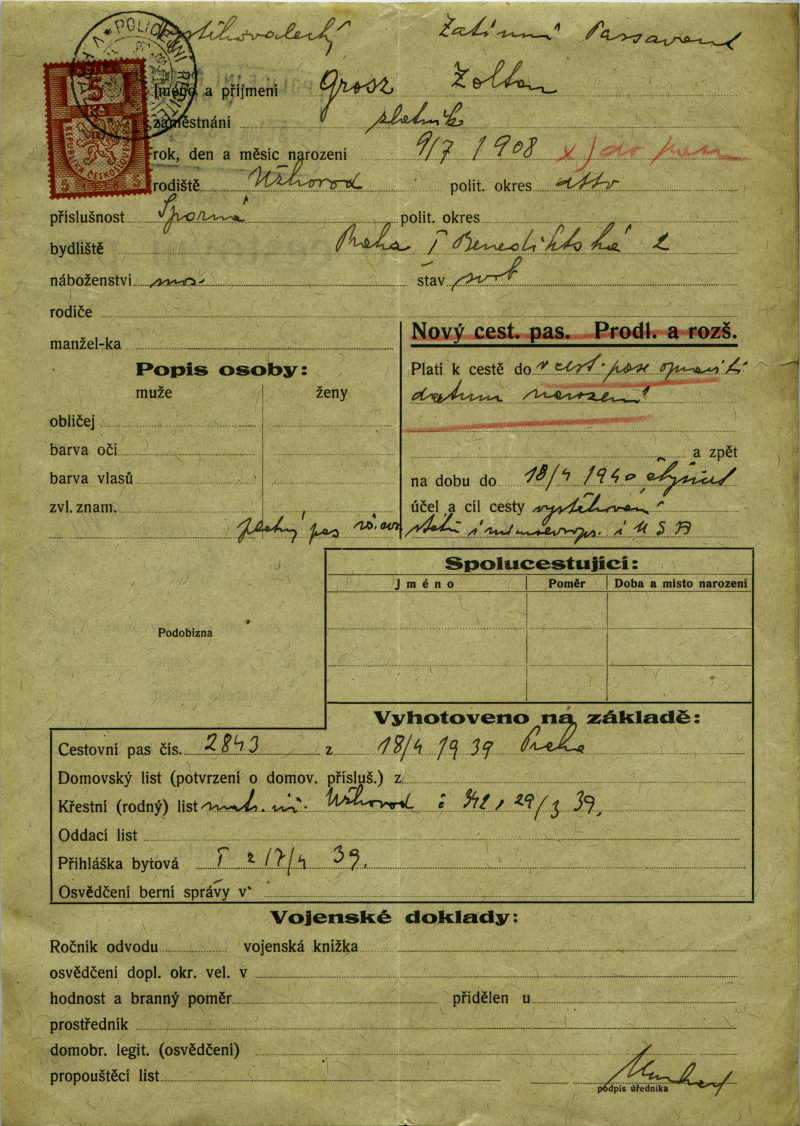 Vystěhovalecký Zatímní Passavant
POLICEJNÍ ŘEDITEL
5
Kč
REPUBLIKA ČESKOSLOVENSKÁ
5 5
Jméno a příjmení Grosz Zoltan
zaměstnání zlatník
rok, den a měsíc narození 9/7 1908 x) do pasu
rodiště Užhorod polit. okres dtto
příslušnost Sporná polit. okres
bydliště Praha I Benediktská 2
náboženství mos. stav svob
rodiče
manžel-ka
Nový cest. pas. Prodl. a rozš.
Popis osoby:
muže ženy
obličej
barva očí
barva vlasů
zvl. znam.
Platí k cestě do v cest. pase opraviti
datum narození
a zpět
na dobu do 18/4 1940
účel a cíl cesty vystěhování
pas států i mimoevrops. i USA
Podobizna
Spolucestující:
Jméno Poměr Doba a místo narození
Vyhotoveno na základě:
Cestovní pas čís. 2843 z 18/4 1939 Praha
Domovský list (potvrzení o domov. přísluš.) z
Křestní (rodný) list mat. úř. Užhorod č 342, 29/3 39.
Oddací list
Přihláška bytová I z 17/4 39.
Osvědčení berní správy v
Vojenské doklady:
Ročník odvodu vojenská knížka
osvědčení dopl. okr. vel. v
hodnost a branný poměr přidělen u
prostředník
domobr. legit. (osvědčení)
propouštěcí list
podpis úředníka